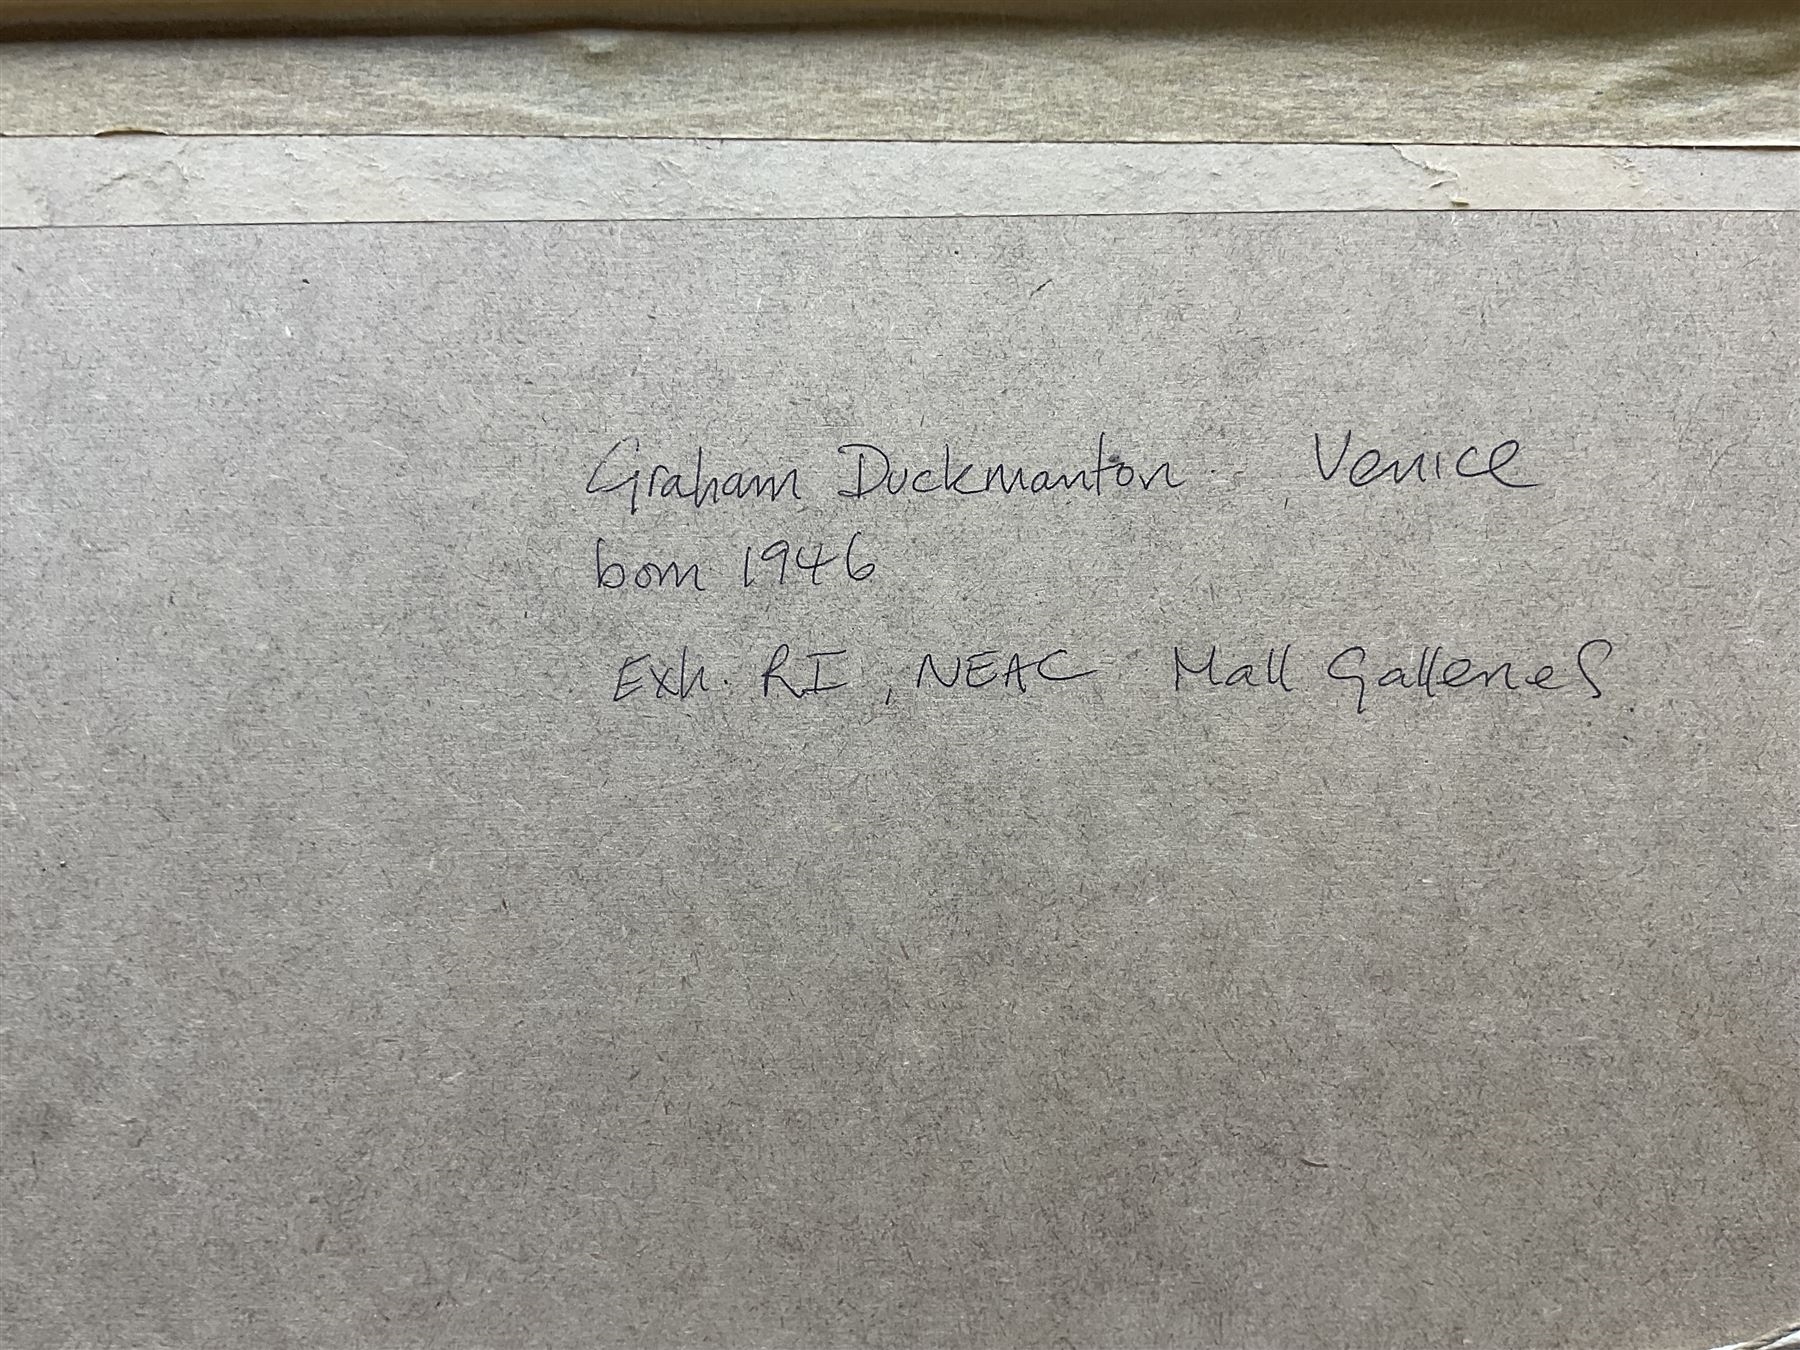 Graham Duckmanton Venice
born 1946
Exh. RI, NEAC Mall Galleries